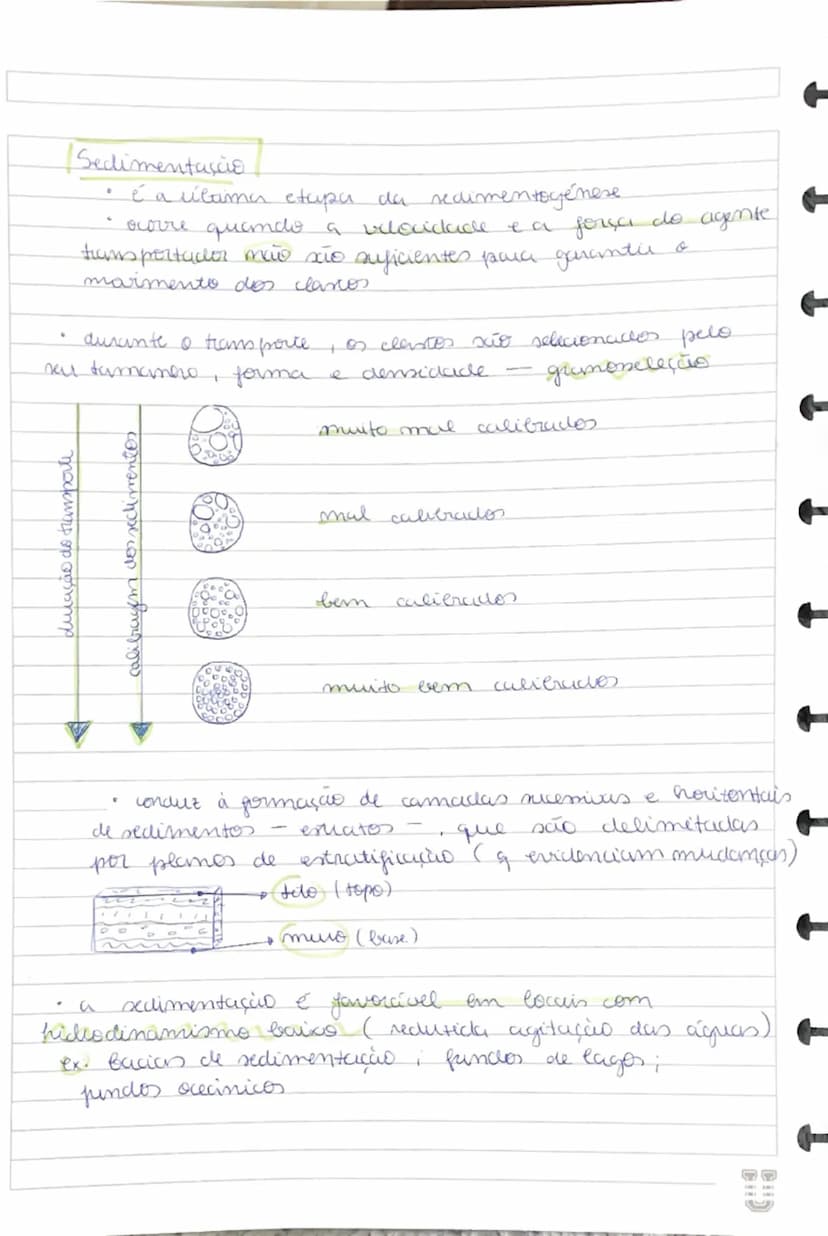 Sedimentação
• é a última etapa da sedimentogénese
• ocorre quando a velocidade e a força do agente
transportador não são suficientes para garantir o
movimento dos clastos
• durante o transporte, os clastos são selecionados pelo
seu tamanho, forma e densidade — granoseleção
duração do transporte
calibragem dos sedimentos
muito mal calibrados
mal calibrados
bem calibrados
muito bem calibrados
• conduz à formação de camadas sucessivas e horizontais
de sedimentos - estratos -, que são delimitadas
por planos de estratificação (q evidenciam mudanças)
teto (topo)
muro (base)
• a sedimentação é favorável em locais com
hidrodinamismo baixo (reduzida agitação das águas)
ex. bacias de sedimentação; fundos de lagos;
fundos oceânicos